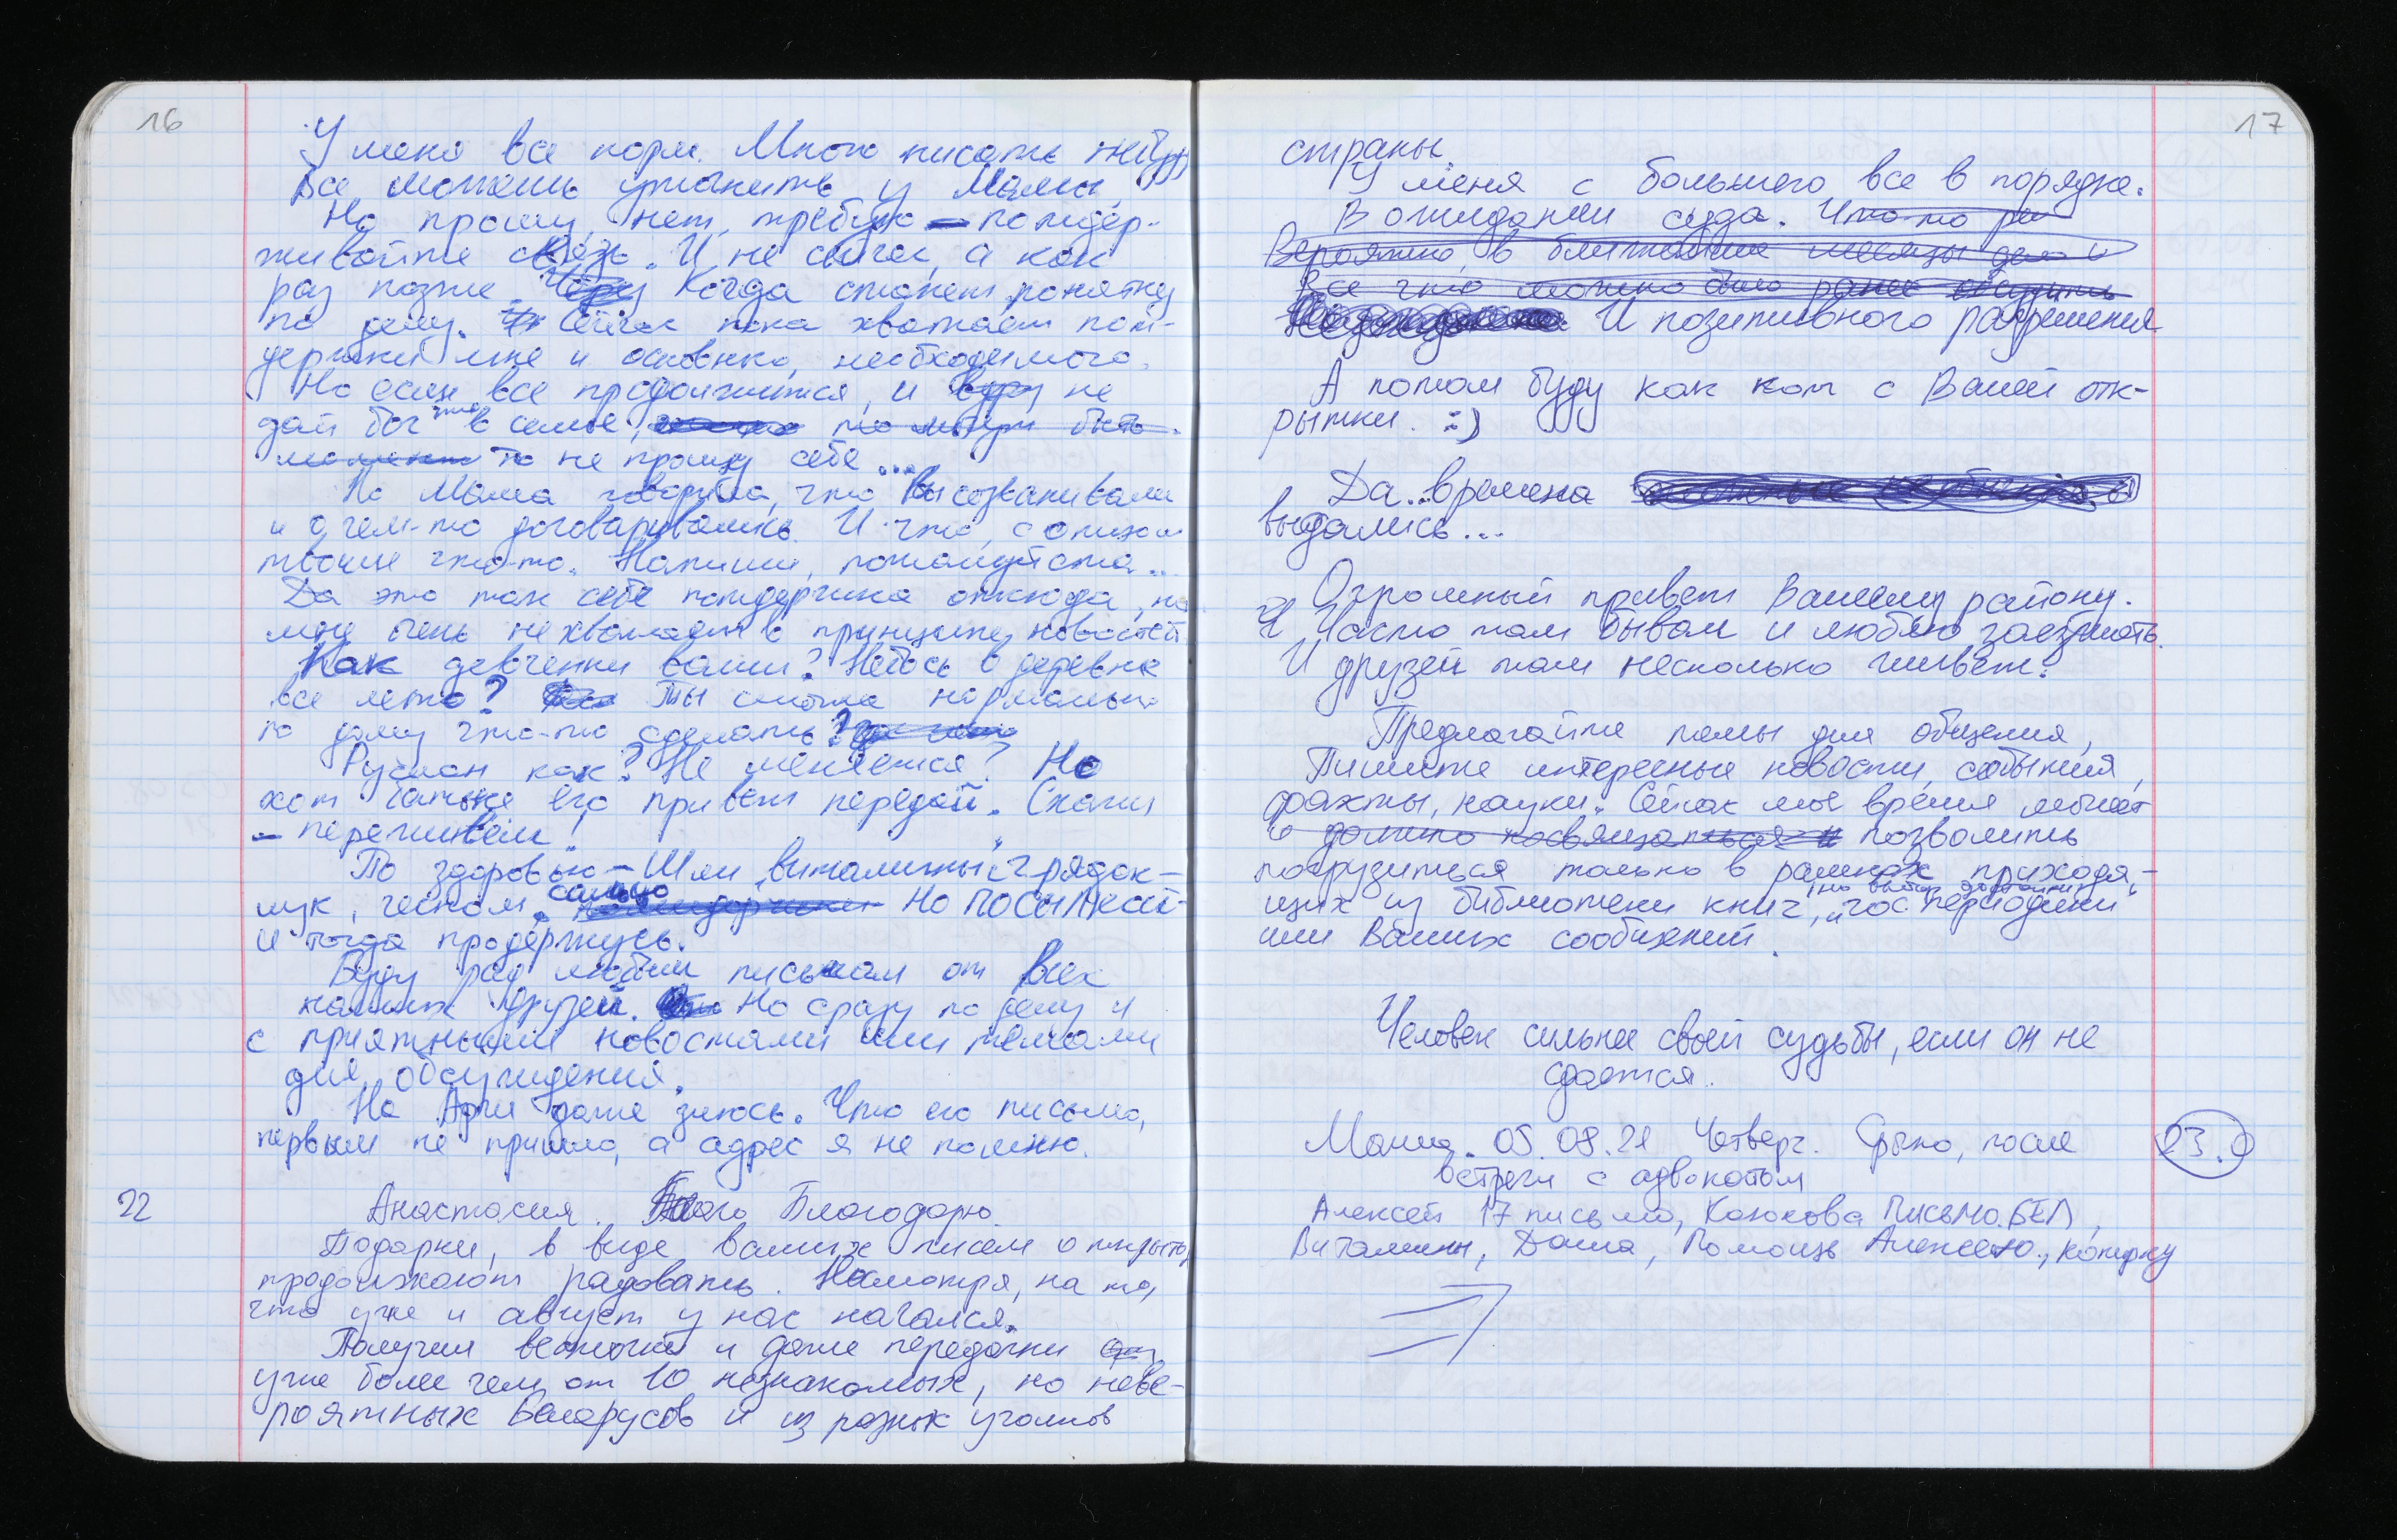 16
У меня все норм. Много писать не буду
Все можешь уточнить у Мамы.
Но прошу, нет, требую – поддер-
живайте связь. И не сейчас, а как
раз позже. Через Когда станет понятну
по делу. Сейчас пока хватает под-
держки мне и основного, необходимого.
Но если все продолжится, и вдруг не
дай бог что в семье, то может быть
то не прощу себе...
По Мама говорила, что Вы созванивали
и о чем-то договаривались. И что, с
твоим что-то. Напиши, пожалуйста...
Да это так себе поддержка отсюда, но
мне очень не хватает в принципе новостей
Как девченки ваши? Небось в деревне
все лето? Ты смогла нормально
по дому что-то сделать?
Руслан как? Не меняется? Но
хот батьке его привет передай. Скажи
– переживем!
По здоровью – Шли "витамины" с грядок –
лук, чеснок. сально Но ПОСЫЛКАМ-
и тогда продержусь.
Буду рад любым письмам от всех
наших друзей. Но сразу по делу и
с приятными новостями или темами
для обсуждения.
На Арчи даже злюсь. Что его письмо,
первым не пришло, а адрес я не помню.
22
Анастасия. Благодарю.
Подарки, в виде ваших писем открыто,
продолжают радовать. Несмотря, на то,
что уже и август у нас начался.
Получил весточки и даже передачки от
уже более чем от 10 незнакомых, но неве-
роятных беларусов и из разных уголков
17
страны.
У меня с большего все в порядке.
В ожидании суда. Что-то ре
Вероятно, в ближайшие месяцы дело и
Все что можно было ранее обсудить
И позитивного разрешения
А потом буду как кот с Вашей отк-
рытки. :)
Да.. времена
выдались...
Огромный привет Вашему району.
Я Часто там бывал и люблю заезжать.
И друзей там несколько живет.
Предлагайте темы для общения,
Пишите интересные новости, события,
факты, науки. Сейчас мое время может
и должно посвящаться и позволить
погрузиться только в рамках приходя-
щих из библиотеки книг, но выбор достойный, "гос периодики"
или Ваших сообщений.
Человек сильнее своей судьбы, если он не
сдается.
Маша. 05.08.21 Четверг. Фрыно, после
встречи с адвокатом
23.0
Алексей 17 письмо, Казюкова ПИСЬМО.БЕЛ,
Витамины, Даша, Помощь Алексею, копирку